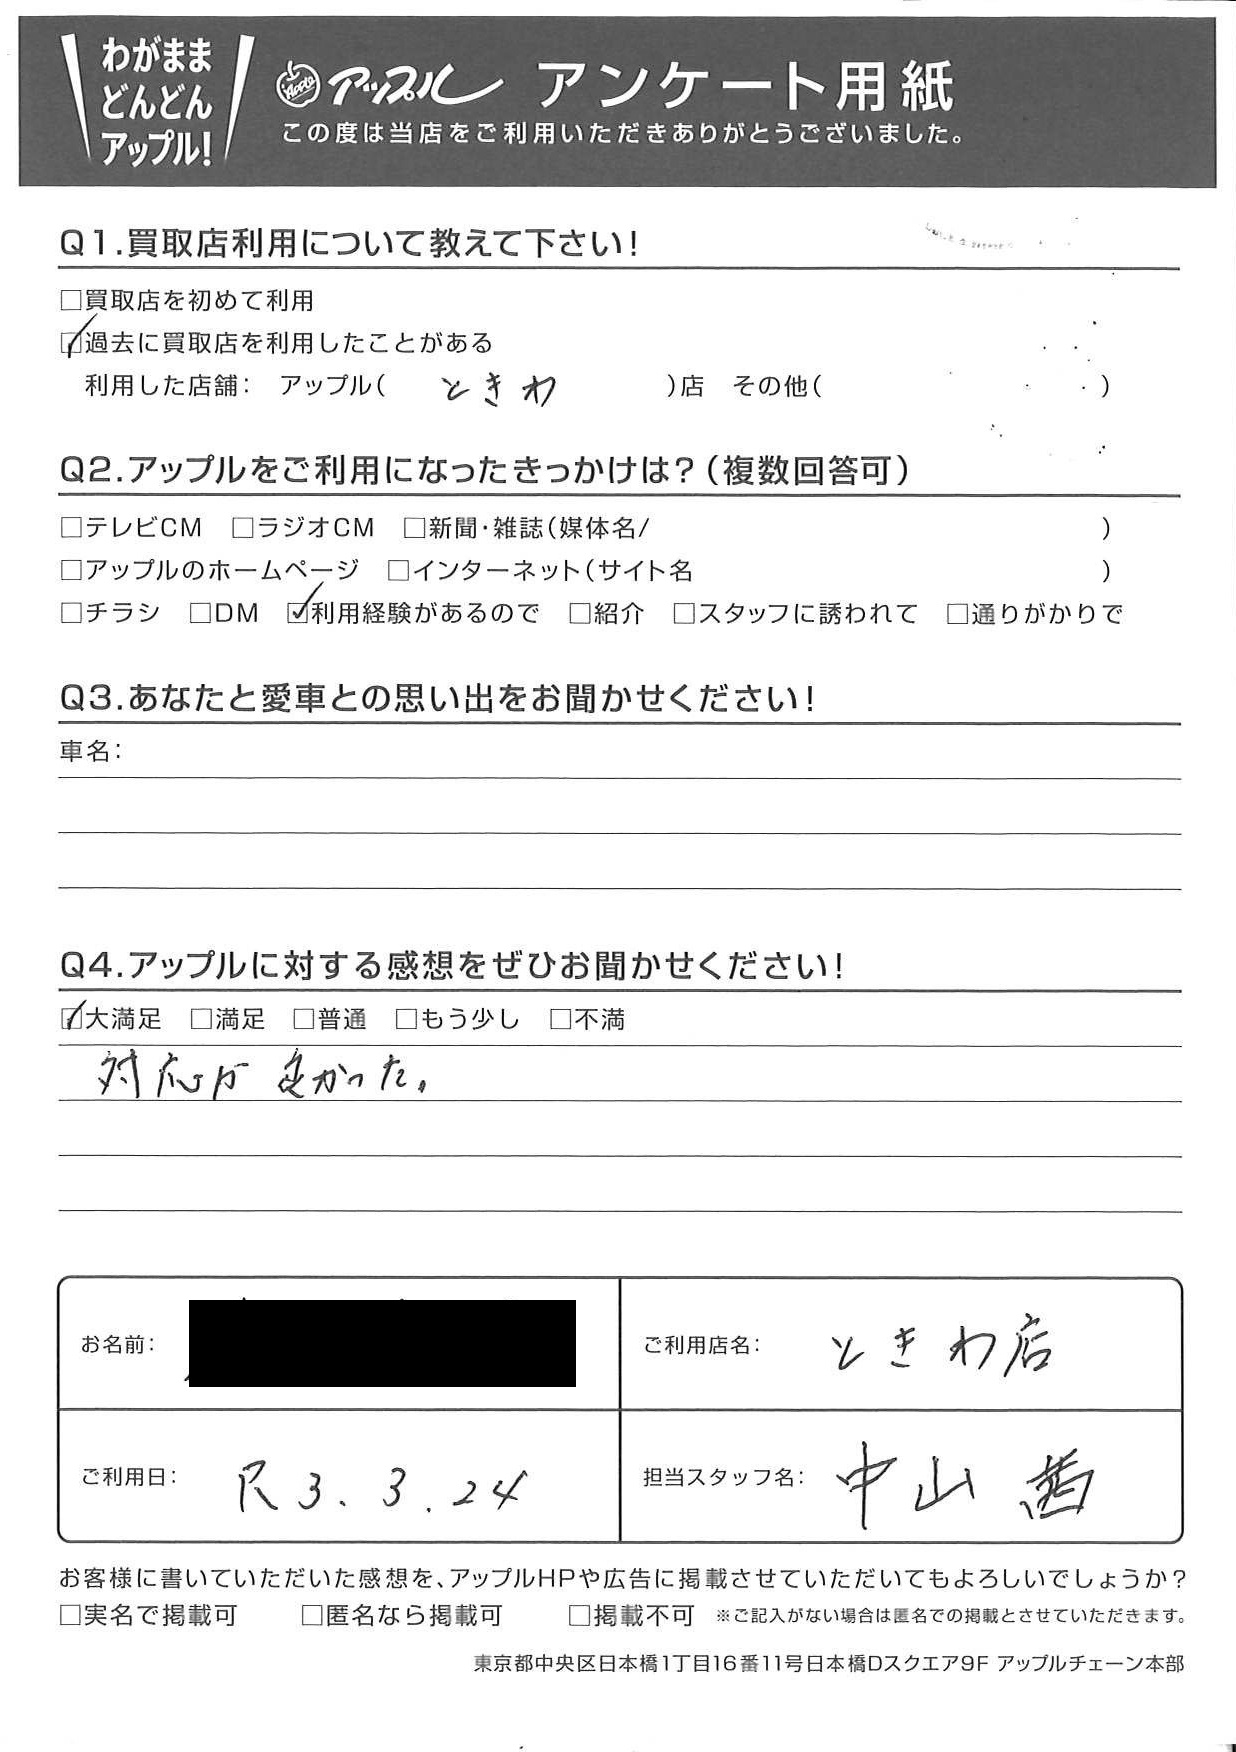 わがまま
どんどん
アップル!
Apple アップル アンケート用紙
この度は当店をご利用いただきありがとうございました。
Q1.買取店利用について教えて下さい!
□買取店を初めて利用
☑過去に買取店を利用したことがある
利用した店舗: アップル( ときわ )店 その他( )
Q2.アップルをご利用になったきっかけは?(複数回答可)
□テレビCM □ラジオCM □新聞・雑誌(媒体名/ )
□アップルのホームページ □インターネット(サイト名 )
□チラシ □DM ☑利用経験があるので □紹介 □スタッフに誘われて □通りがかりで
Q3.あなたと愛車との思い出をお聞かせください!
車名:
Q4.アップルに対する感想をぜひお聞かせください!
☑大満足 □満足 □普通 □もう少し □不満
対応が良かった。
お名前:
ご利用店名: ときわ店
ご利用日: R3.3.24
担当スタッフ名: 中山 茜
お客様に書いていただいた感想を、アップルHPや広告に掲載させていただいてもよろしいでしょうか?
□実名で掲載可 □匿名なら掲載可 □掲載不可 ※ご記入がない場合は匿名での掲載とさせていただきます。
東京都中央区日本橋1丁目16番11号日本橋Dスクエア9F アップルチェーン本部